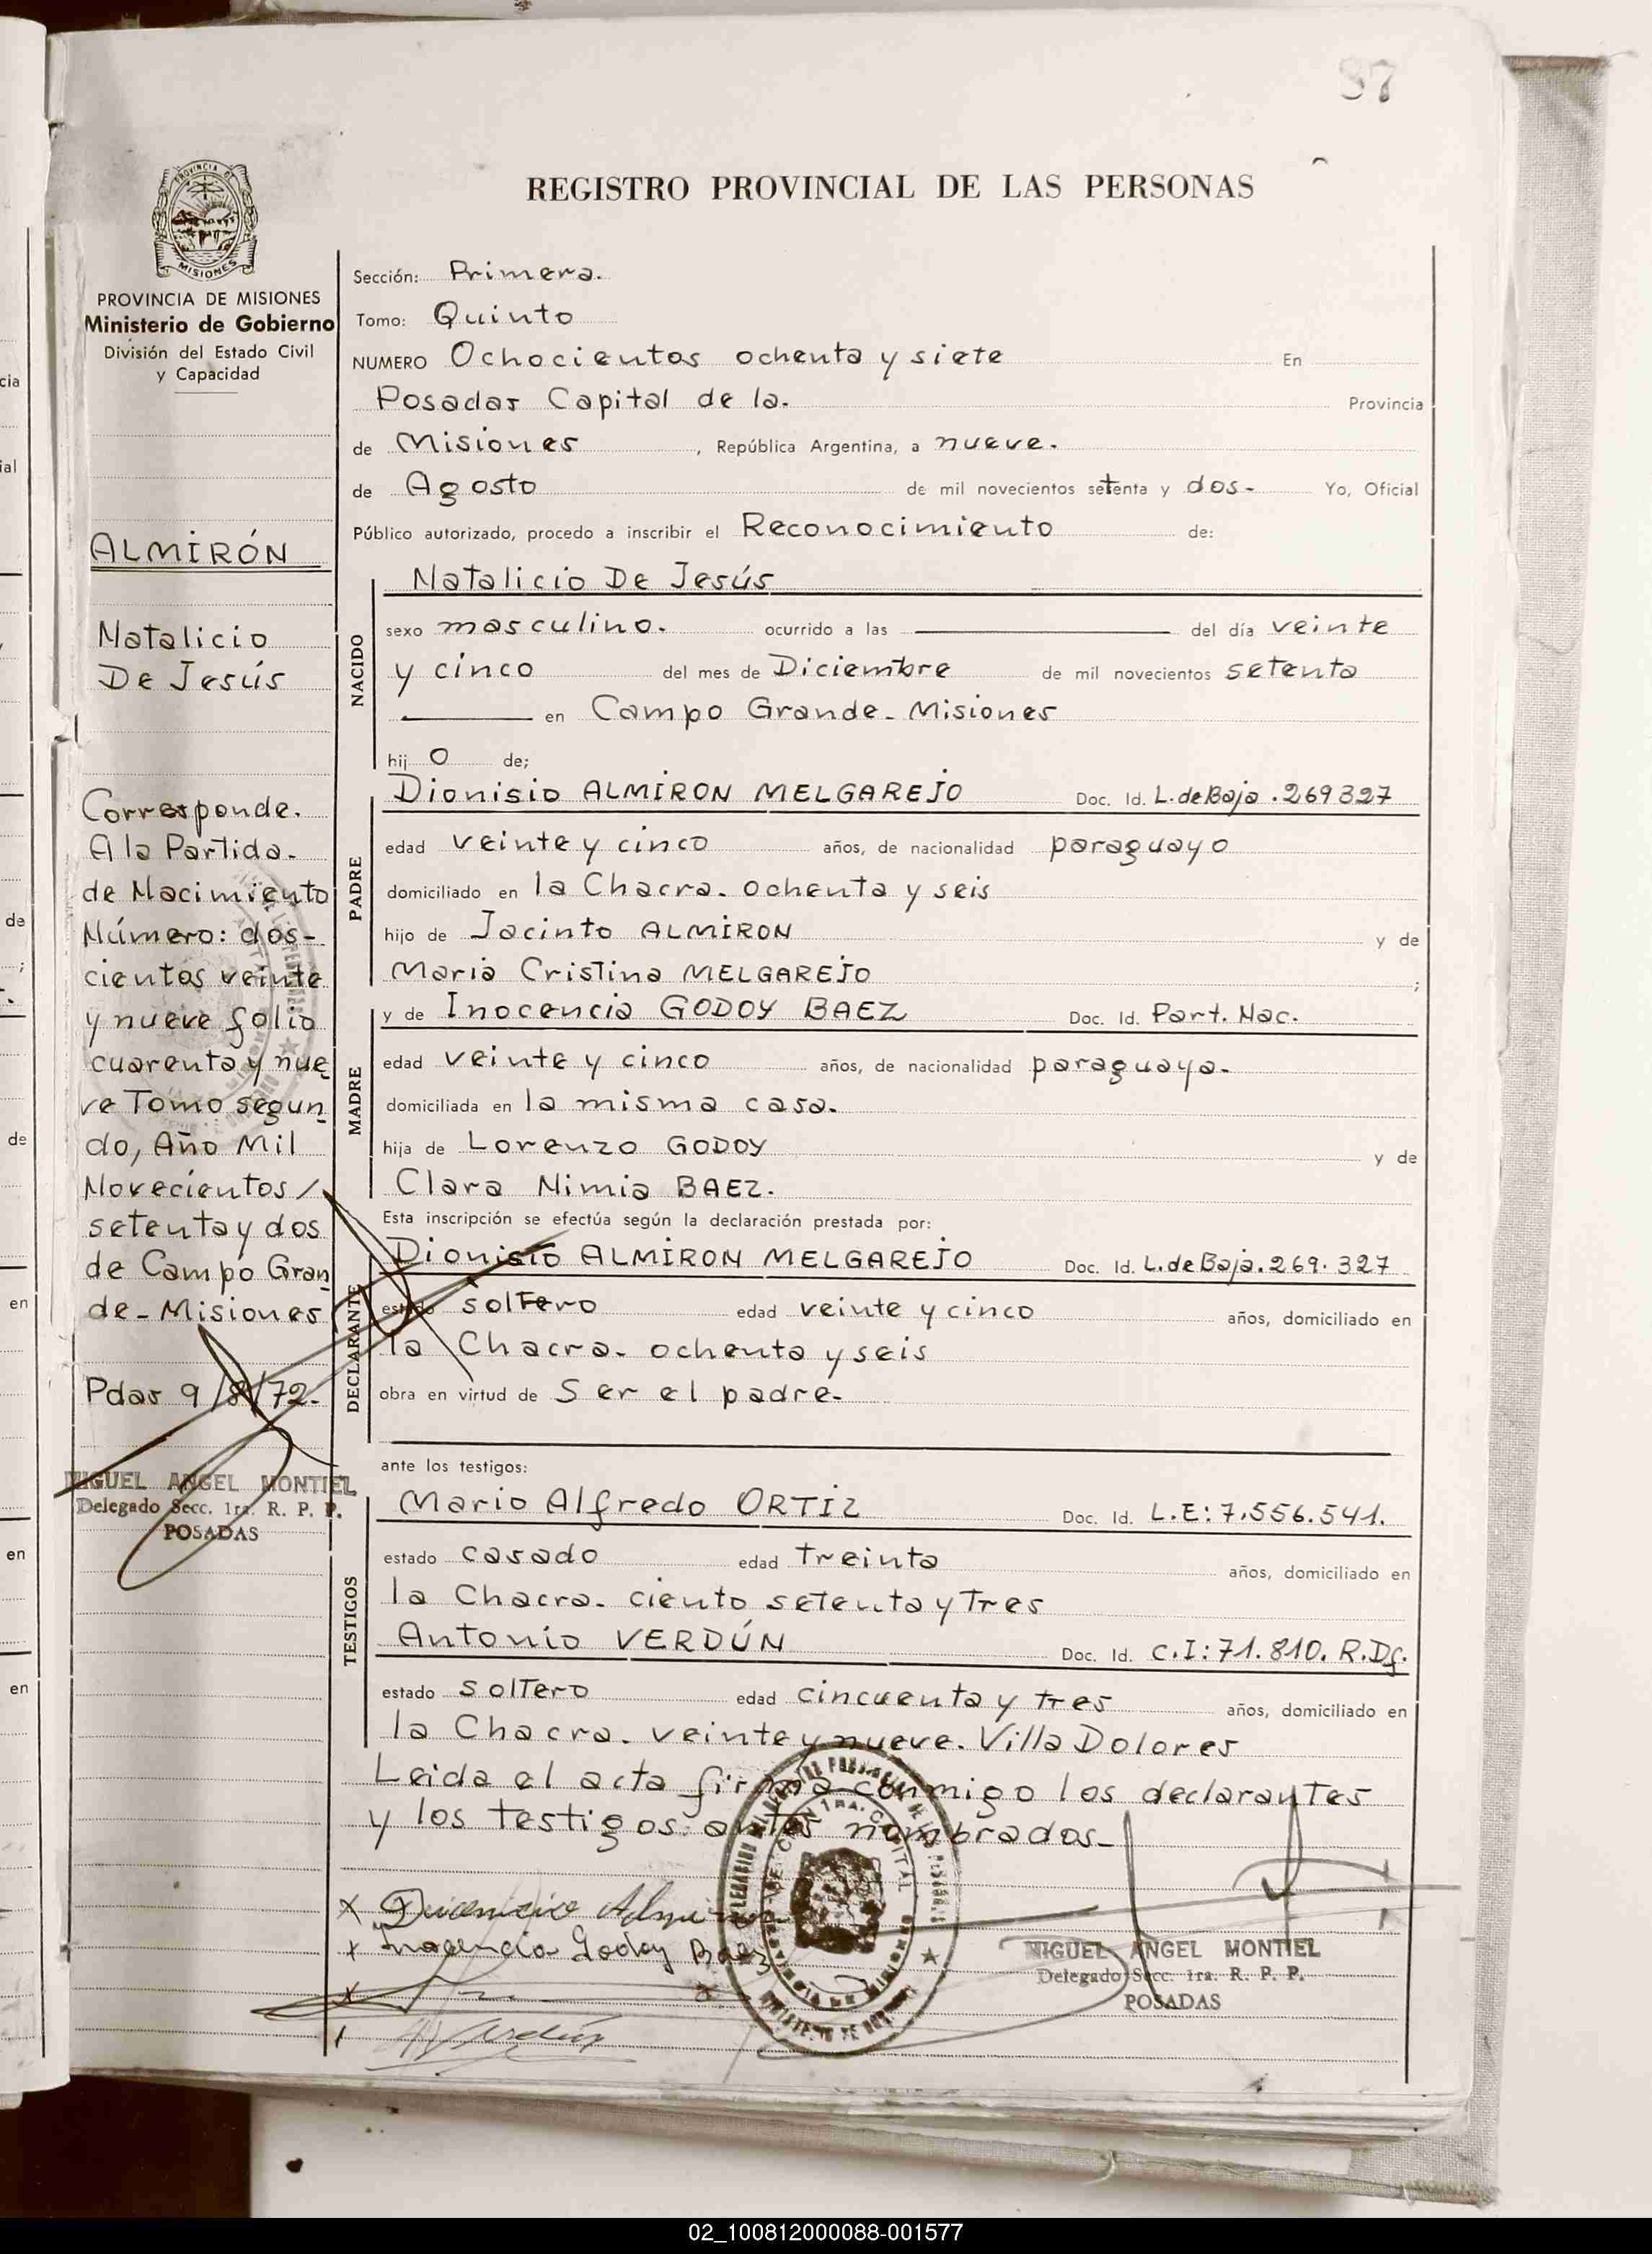 87
REGISTRO PROVINCIAL DE LAS PERSONAS
PROVINCIA DE MISIONES
Ministerio de Gobierno
División del Estado Civil
y Capacidad
ALMIRÓN
Natalicio
De Jesús
Corresponde.
A la Partida.
de Nacimiento
Número: dos-
cientos veinte
y nueve folio
cuarenta y nue
ve Tomo segun
do, Año Mil
Novecientos /
setenta y dos
de Campo Gran
de - Misiones
Pdas 9/8/72.
MIGUEL ANGEL MONTIEL
Delegado Secc. 1ra. R. P. P.
POSADAS
Sección: Primera.
Tomo: Quinto
NUMERO Ochocientos ochenta y siete En
Posadas Capital de la. Provincia
de Misiones , República Argentina, a nueve.
de Agosto de mil novecientos setenta y dos- Yo, Oficial
Público autorizado, procedo a inscribir el Reconocimiento de:
Natalicio De Jesús
NACIDO
sexo masculino. ocurrido a las del día veinte
y cinco del mes de Diciembre de mil novecientos setenta
en Campo Grande - Misiones
hij o de;
Dionisio ALMIRON MELGAREJO Doc. Id. L. de Baja . 269327
PADRE
edad veinte y cinco años, de nacionalidad paraguayo
domiciliado en la Chacra. ochenta y seis
hijo de Jacinto ALMIRON y de
Maria Cristina MELGAREJO ;
y de Inocencia GODOY BAEZ Doc. Id. Part. Nac.
MADRE
edad veinte y cinco años, de nacionalidad paraguaya.
domiciliada en la misma casa.
hija de Lorenzo GODOY y de
Clara Nimia BAEZ.
Esta inscripción se efectúa según la declaración prestada por:
Dionisio ALMIRON MELGAREJO Doc. Id. L. de Baja. 269.327
DECLARANTE
estado soltero edad veinte y cinco años, domiciliado en
la Chacra. ochenta y seis
obra en virtud de Ser el padre.
ante los testigos:
Mario Alfredo ORTIZ Doc. Id. L.E: 7.556.541.
TESTIGOS
estado casado edad treinta años, domiciliado en
la Chacra. ciento setenta y tres
Antonio VERDÚN Doc. Id. C.I: 71.810. R.Df.
estado soltero edad cincuenta y tres años, domiciliado en
la Chacra. veinte y nueve. Villa Dolores
Leida el acta firma conmigo los declarantes
y los testigos: antes nombrados_
Inocencia Godoy Baez
MIGUEL ANGEL MONTIEL
Delegado Secc. 1ra. R. P. P.
POSADAS
02_100812000088-001577